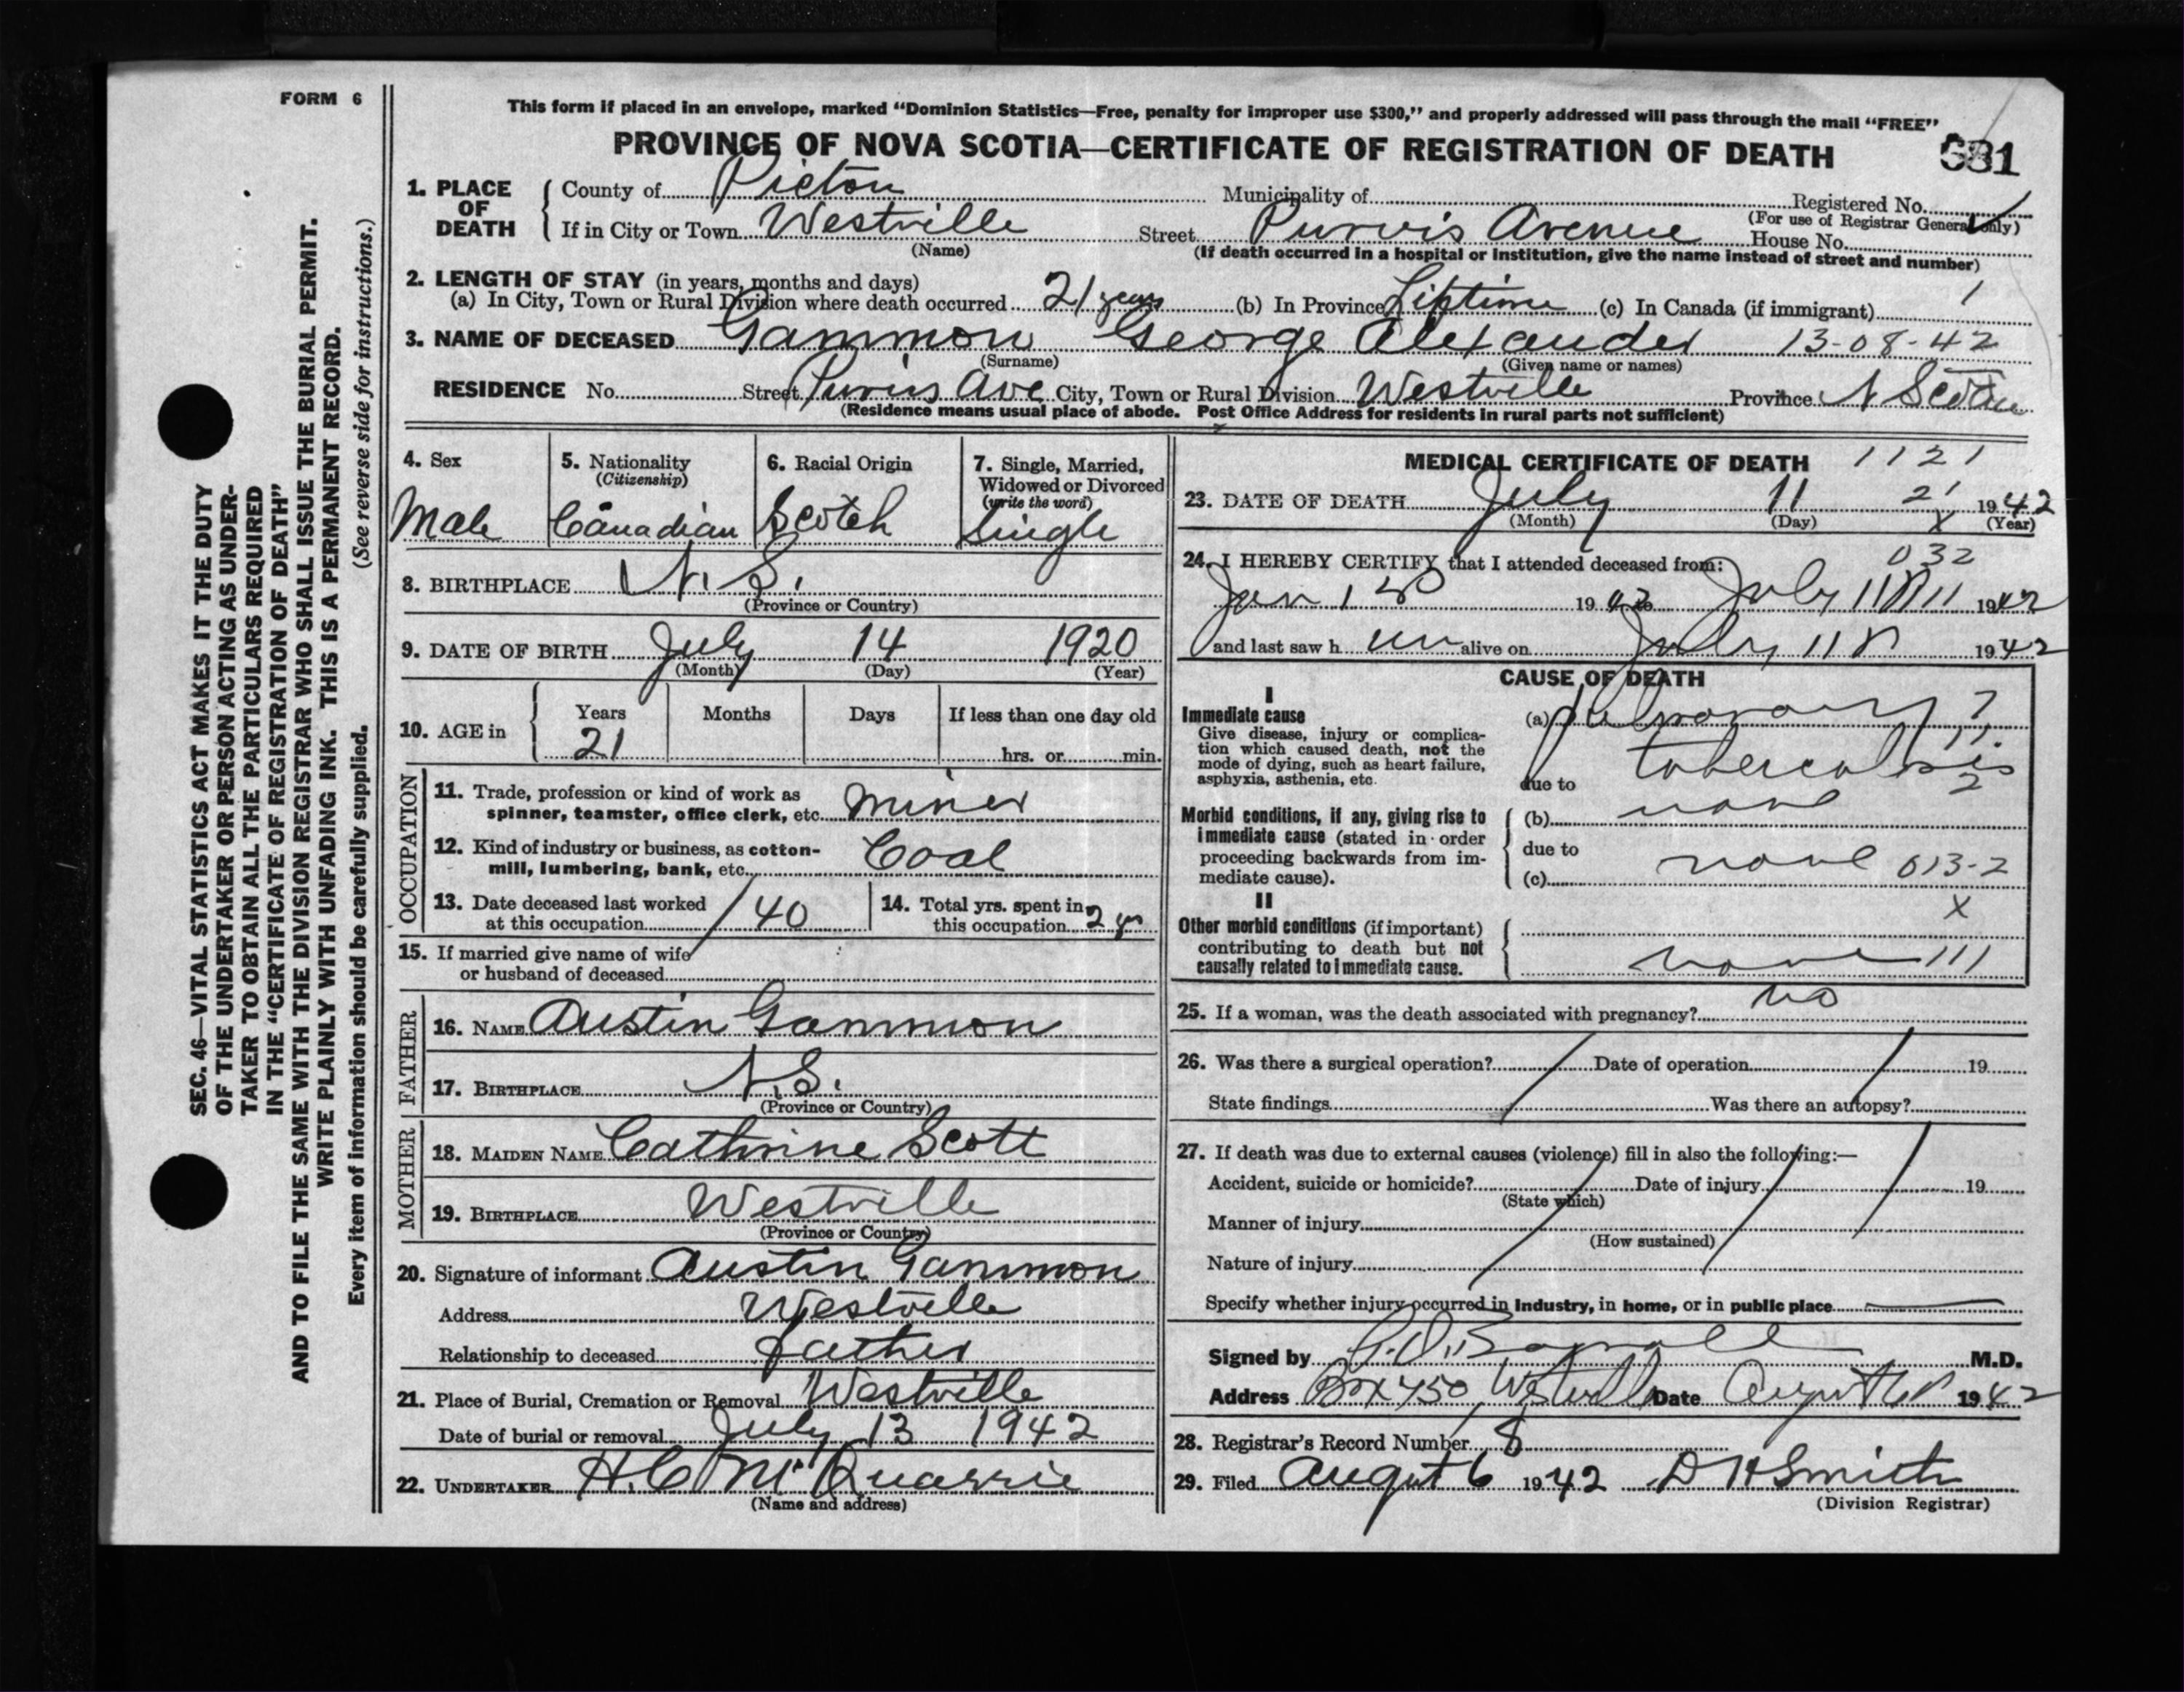 FORM 6
This form if placed in an envelope, marked “Dominion Statistics—Free, penalty for improper use $300,” and properly addressed will pass through the mail “FREE”
PROVINCE OF NOVA SCOTIA—CERTIFICATE OF REGISTRATION OF DEATH
1. PLACE OF DEATH
County of Pictou Municipality of Registered No.
(For use of Registrar General only)
If in City or Town Westville Street Purvis Avenue House No.
(Name) (If death occurred in a hospital or institution, give the name instead of street and number)
2. LENGTH OF STAY (in years, months and days)
(a) In City, Town or Rural Division where death occurred 21 years (b) In Province Liftime (c) In Canada (if immigrant) 1
3. NAME OF DECEASED Gammon George Alexander 13-08-42
(Surname) (Given name or names)
RESIDENCE No. Street Purvis Ave City, Town or Rural Division Westville Province N Scotia
(Residence means usual place of abode. Post Office Address for residents in rural parts not sufficient)
4. Sex
Male
5. Nationality
(Citizenship)
Canadian
6. Racial Origin
Scotch
7. Single, Married,
Widowed or Divorced
(write the word)
Single
8. BIRTHPLACE N. S.
(Province or Country)
9. DATE OF BIRTH July 14 1920
(Month) (Day) (Year)
10. AGE in
Years Months Days If less than one day old
21 hrs. or min.
OCCUPATION
11. Trade, profession or kind of work as
spinner, teamster, office clerk, etc. Miner
12. Kind of industry or business, as cotton-
mill, lumbering, bank, etc. Coal
13. Date deceased last worked
at this occupation /40
14. Total yrs. spent in
this occupation 2 yrs
15. If married give name of wife
or husband of deceased
FATHER
16. NAME Austin Gammon
17. BIRTHPLACE N.S.
(Province or Country)
MOTHER
18. MAIDEN NAME Cathrine Scott
19. BIRTHPLACE Westville
(Province or Country)
20. Signature of informant Austin Gammon
Address Westville
Relationship to deceased father
21. Place of Burial, Cremation or Removal Westville
Date of burial or removal July 13 1942
22. UNDERTAKER H.C McQuarrie
(Name and address)
MEDICAL CERTIFICATE OF DEATH 1121
23. DATE OF DEATH July 11 21 1942
(Month) (Day) X (Year)
032
24. I HEREBY CERTIFY that I attended deceased from:
Jan 1 1942 to July 11 1942
and last saw h im alive on July 11 1942
CAUSE OF DEATH
I
Immediate cause
Give disease, injury or complica-
tion which caused death, not the
mode of dying, such as heart failure,
asphyxia, asthenia, etc.
(a) pulmonary
due to tuberculosis
2
Morbid conditions, if any, giving rise to
immediate cause (stated in order
proceeding backwards from im-
mediate cause).
(b) none
due to
(c) none 013-2
X
II
Other morbid conditions (if important)
contributing to death but not
causally related to immediate cause.
none 111
25. If a woman, was the death associated with pregnancy? no
26. Was there a surgical operation? Date of operation 19
State findings Was there an autopsy?
27. If death was due to external causes (violence) fill in also the following:—
Accident, suicide or homicide? Date of injury 19
(State which)
Manner of injury
(How sustained)
Nature of injury
Specify whether injury occurred in industry, in home, or in public place
Signed by M.D.
Address Box 450, Westville Date August 1942
28. Registrar's Record Number 8
29. Filed August 6 1942 D H Smith
(Division Registrar)
SEC. 46—VITAL STATISTICS ACT MAKES IT THE DUTY
OF THE UNDERTAKER OR PERSON ACTING AS UNDER-
TAKER TO OBTAIN ALL THE PARTICULARS REQUIRED
IN THE “CERTIFICATE OF REGISTRATION OF DEATH”
AND TO FILE THE SAME WITH THE DIVISION REGISTRAR WHO SHALL ISSUE THE BURIAL PERMIT.
WRITE PLAINLY WITH UNFADING INK. THIS IS A PERMANENT RECORD.
Every item of information should be carefully supplied. (See reverse side for instructions.)